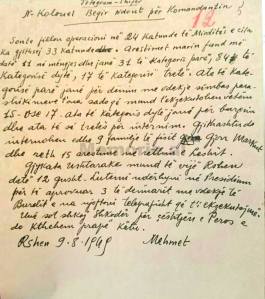 Telegram - Shifër
N-Kolonel Beqir Ndout për Komandantin
12
Sonte fillon operacioni në 24 Katunde të Mirditës e cila
ka gjithsej 33 Katunde. Arrestimet marin fund më
datë 81 në mëngjes dhe janë 31 të Kategoris parë, 84 të
Kategoris dytë, 17 të Kategoris tretë. Ato të kate-
goris parë janë për denim me vdekje simbas para-
shikimeve una sadogë mund t'ekzekutohen vetëm
15. ose 17. ato të Kategoris dytë janë për burgim
dhe ata të së tretës për internim. Gjithashtu do
internohen dhe 9 familje të fisit Gjon Markut
dhe reth 15 në qarkun e Lezhës.
Gjykata Ushtarake mund të vijë Rshen
datë 12 gusht. Lutemi ndërhyni në Presidium
për të aprovuar 3 të denuarit me vdekje të
Burelit e na njoftoni telegrafisht që t'i ekzekutojmë
Unë sot shkoj Shkodër për çështjen e Peros e
do Kthehem prapë këtu.
Rshen 9.8.1949 Mehmet